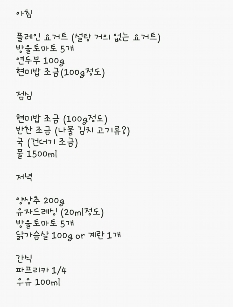 아침
플레인 요거트 (설탕 거의 없는 요거트)
방울토마토 5개
연두부 100g
현미밥 조금(100g정도)
점심
현미밥 조금 (100g정도)
반찬 조금 (나물 김치 고기류?)
국 (건더기 조금)
물 1500ml
저녁
양상추 200g
유자드레싱 (20ml정도)
방울토마토 5개
닭가슴살 100g or 계란 1개
간식
파프리카 1/4
우유 100ml